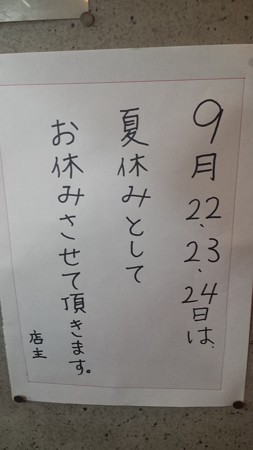 9月22、23、24日は、
夏休みとして
お休みさせて頂きます。
店主